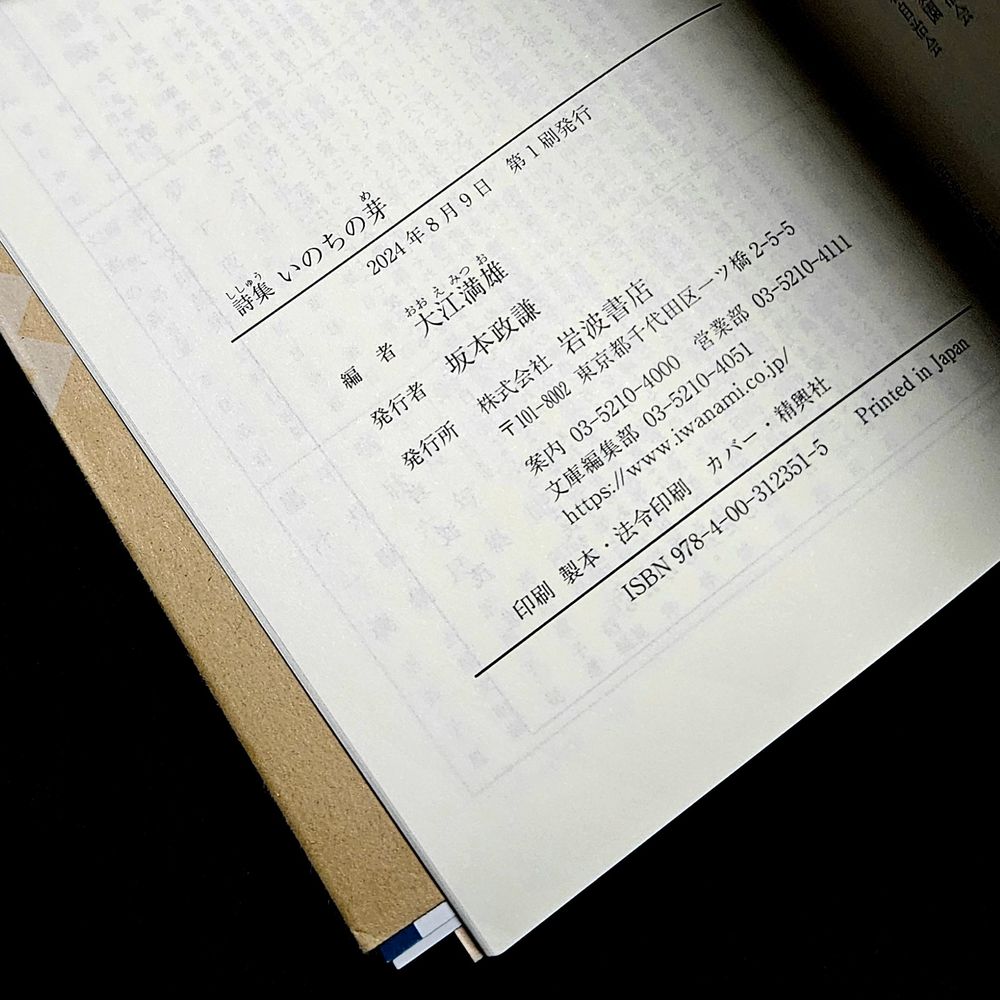 詩集 いのちの芽
ししゅう
め
2024年8月9日 第1刷発行
編者 大江満雄
おおえみつお
発行者 坂本政謙
発行所 株式会社 岩波書店
〒101-8002 東京都千代田区一ツ橋 2-5-5
案内 03-5210-4000 営業部 03-5210-4111
文庫編集部 03-5210-4051
https://www.iwanami.co.jp/
印刷 製本・法令印刷 カバー・精興社
ISBN 978-4-00-312351-5 Printed in Japan
自治会